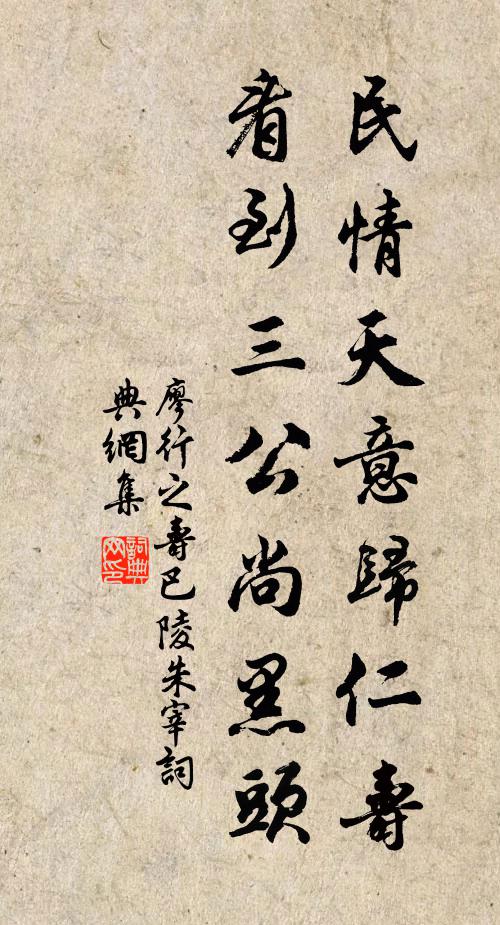 民情天意歸仁壽
看到三公尚黑頭
廖行之壽巴陵朱宰詞
典網集
詞典
网印